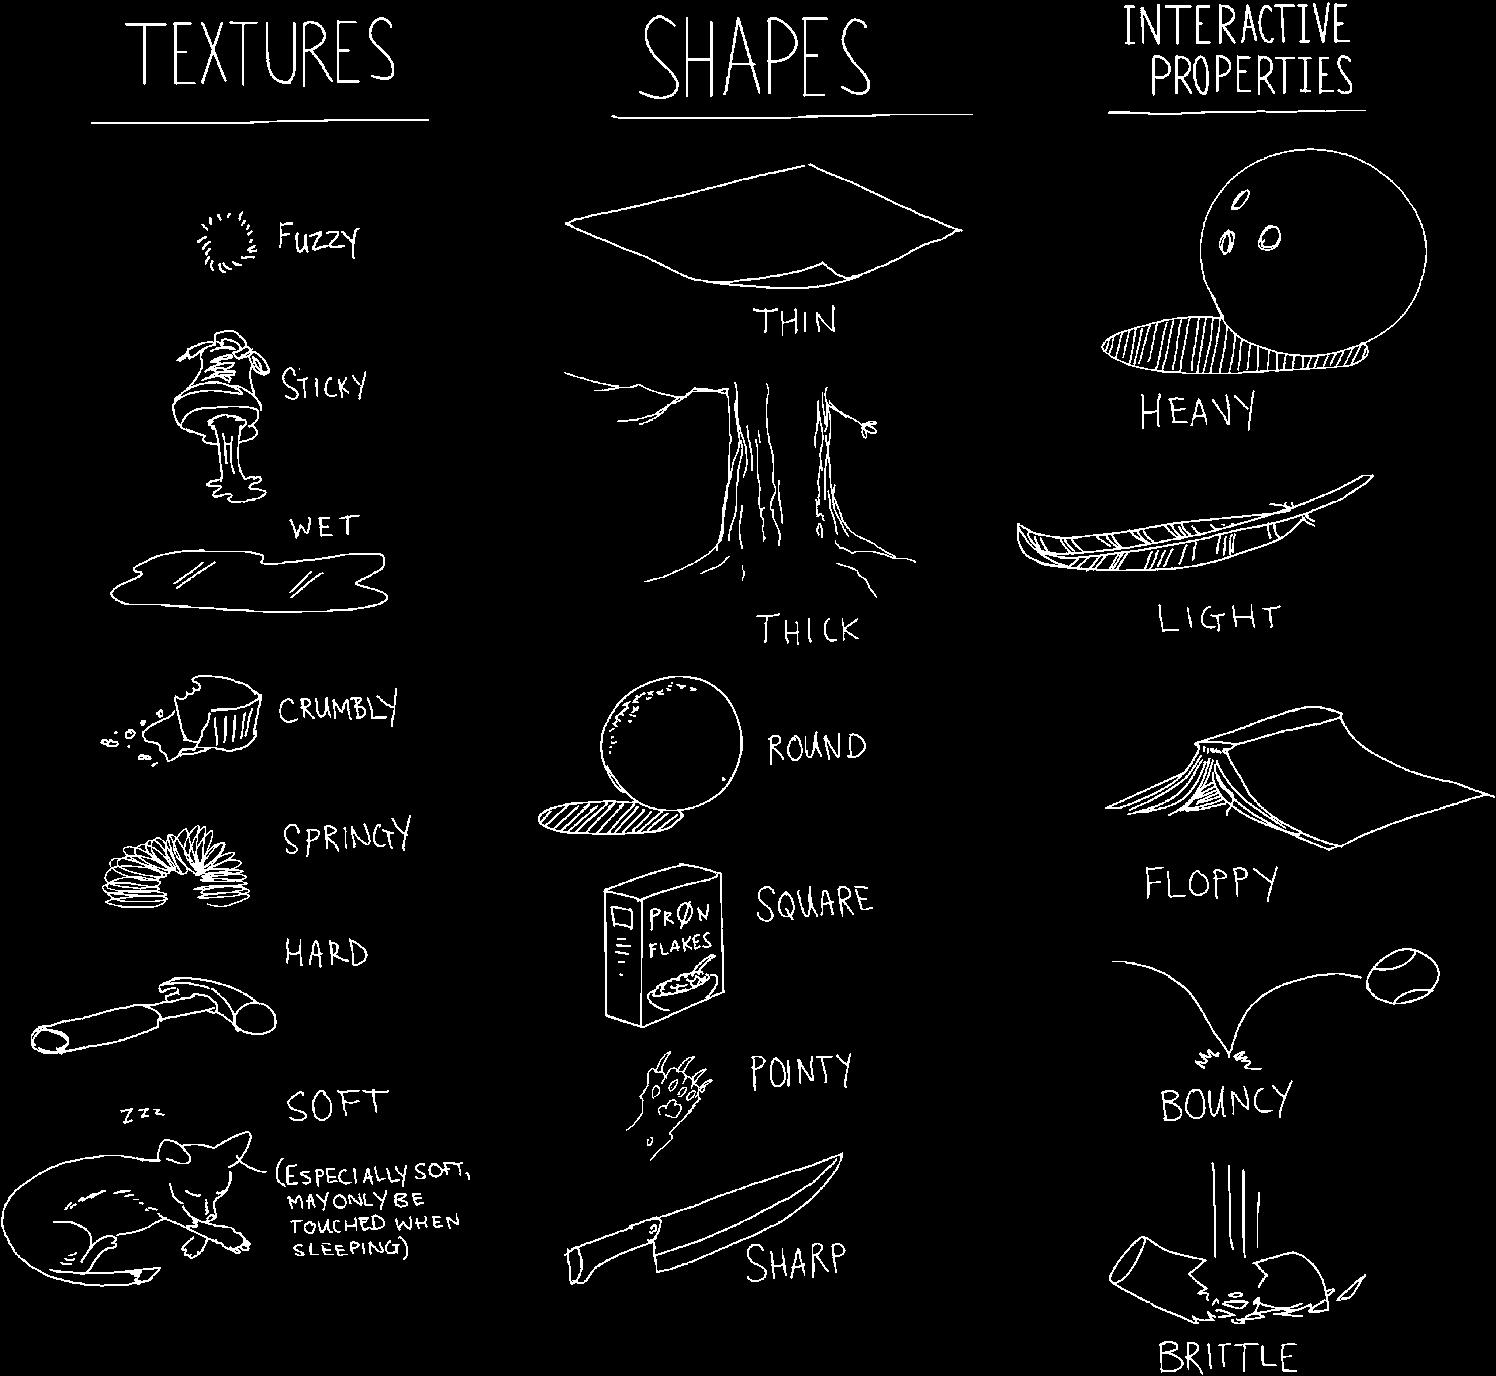 TEXTURES
FUZZY
STICKY
WET
CRUMBLY
SPRINGY
HARD
SOFT
ZZZ
(ESPECIALLY SOFT,
MAY ONLY BE
TOUCHED WHEN
SLEEPING)
SHAPES
THIN
THICK
ROUND
SQUARE
PRØN
FLAKES
POINTY
SHARP
INTERACTIVE
PROPERTIES
HEAVY
LIGHT
FLOPPY
BOUNCY
BRITTLE